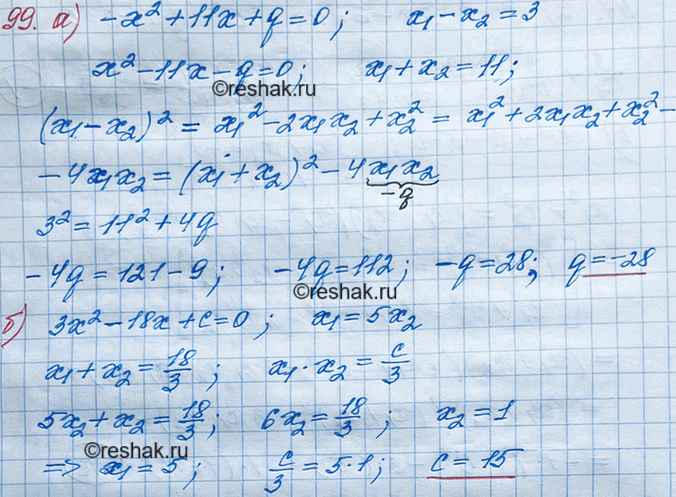 99. а) -x² + 11x + q = 0; x₁ - x₂ = 3
x² - 11x - q = 0; x₁ + x₂ = 11;
©reshak.ru
(x₁ - x₂)² = x₁² - 2x₁x₂ + x₂² = x₁² + 2x₁x₂ + x₂² -
- 4x₁x₂ = (x₁ + x₂)² - 4x₁x₂
-q
3² = 11² + 4q
-4q = 121 - 9; -4q = 112; -q = 28; q = -28
©reshak.ru
б) 3x² - 18x + c = 0; x₁ = 5x₂
x₁ + x₂ = 18/3; x₁ · x₂ = c/3
5x₂ + x₂ = 18/3; 6x₂ = 18/3; x₂ = 1
©reshak.ru
=> x₁ = 5; c/3 = 5·1; c = 15